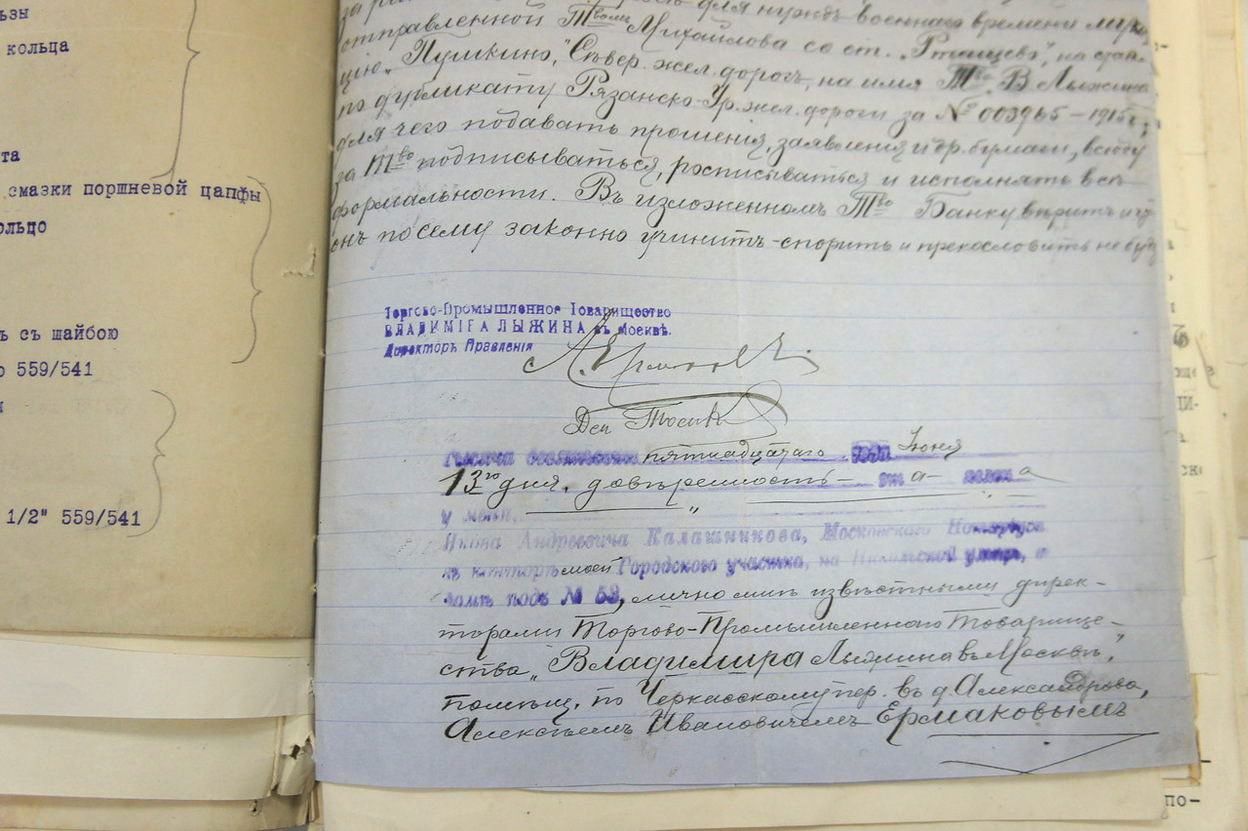 ьзы
кольца
та
смазки поршневой цапфы
ольцо
ъ съ шайбою
559/541
1/2" 559/541
для нуждъ военнаго времени
отправленной Т<sup>вомъ</sup> Михайлова со ст. „Ртищево", на стан-
цію „Пушкино", Сѣвер. жел. дорогъ, на имя Т<sup>ва</sup> В. Лыжина
по дубликату Рязанско-Ур. жел. дороги за № 003965 – 1915 г.;
для чего подавать прошенія, заявленія и др. бумаги, всюду
за Т<sup>во</sup> подписываться, росписываться и исполнять всѣ
формальности. Въ изложенномъ Т<sup>во</sup> Банку вѣритъ и что
онъ по сему законно учинитъ - спорить и прекословить не буд
Торгово-Промышленное Товарищество
ВЛАДИМІРА ЛЫЖИНА въ Москвѣ.
Директоръ Правленія
А. Ермаковъ.
Тысяча девятьсотъ пятнадцатаго года Іюня
13<sup>го</sup> дня, довѣренность – эта – явлена
у меня,
Якова Андреевича Калашникова, Московскаго Нотаріуса
въ конторѣ моей Городского участка, на Никольской улицѣ, въ
домѣ подъ № 53, лично мнѣ извѣстными дирек-
торами Торгово-Промышленнаго Товарище-
ства „Владиміра Лыжина въ Москвѣ",
помѣщ. по Черкасскому пер. въ д. Александрова,
Алексѣемъ Ивановичемъ Ермаковымъ
по-